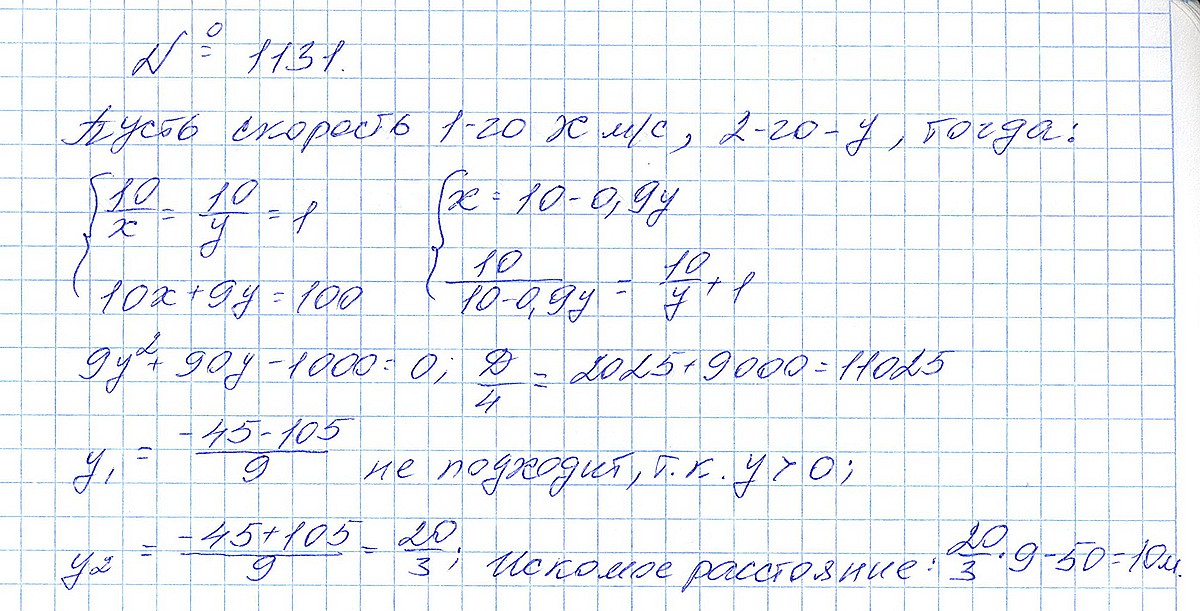 № 1131.
Пусть скорость 1-го x м/с, 2-го - y, тогда:
{ 10/x = 10/y = 1    { x = 10 - 0,9y
10x + 9y = 100    10/(10-0,9y) = 10/y + 1
9y² + 90y - 1000 = 0; D/4 = 2025 + 9000 = 11025
y₁ = (-45-105)/9 не подходит, т.к. y > 0;
y₂ = (-45+105)/9 = 20/3; Искомое расстояние: 20/3 · 9 - 50 = 10м.